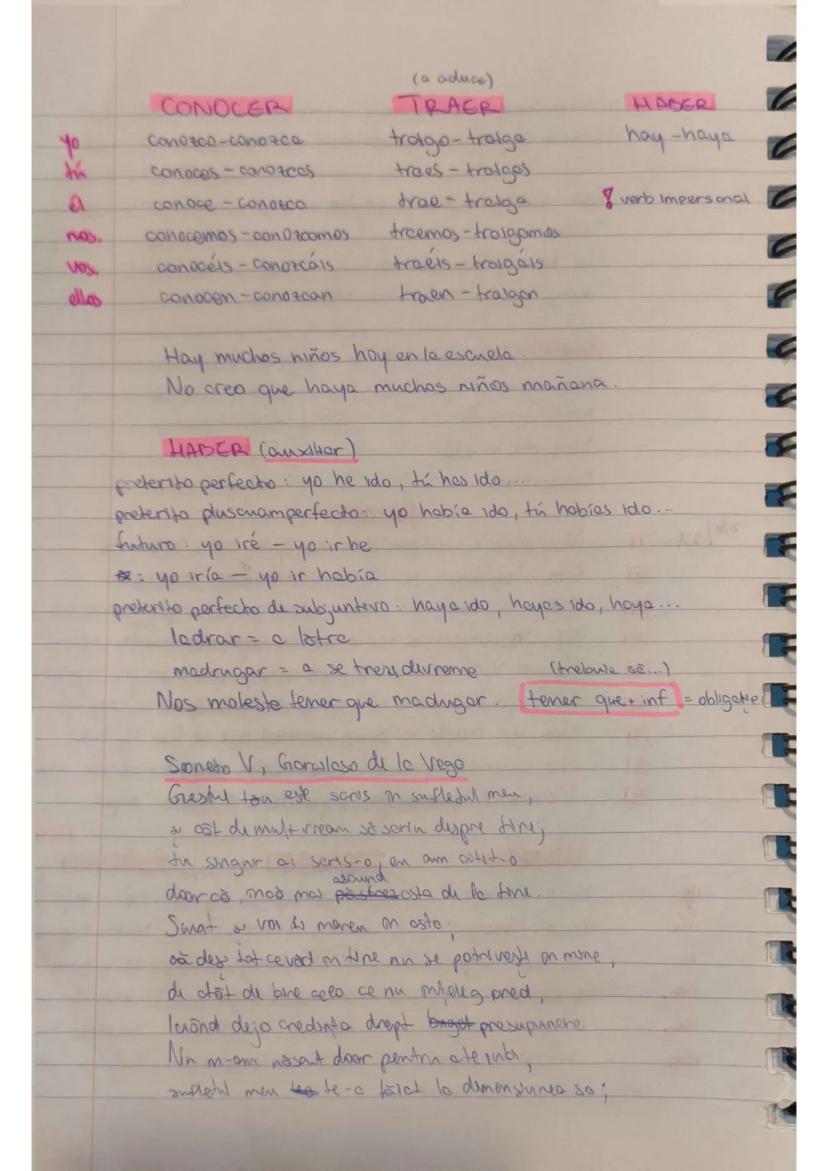 (a aduce)
CONOCER TRAER HABER
yo conozco-conozca traigo-traiga hay-haya
tú conoces-conozcas traes-traigas
él conoce-conozca trae-traiga ! verb impersonal
nos. conocemos-conozcamos traemos-traigamos
vos. conocéis-conozcáis traéis-traigáis
ellos conocen-conozcan traen-traigan
Hay muchos niños hoy en la escuela.
No creo que haya muchos niños mañana.
HABER (auxiliar)
preterito perfecto: yo he ido, tú has ido...
preterito pluscuamperfecto: yo había ido, tú habías ido...
futuro: yo iré - yo ir he
: yo iría - yo ir había
preterito perfecto de subjuntivo: haya ido, hayas ido, haya...
ladrar = a lătra
madrugar = a se trezi devreme (trebuie să...)
Nos moleste tener que madugar. tener que + inf = obligație
Soneto V, Garcilaso de la Vega
Gestul tău este scris în sufletul meu,
și cât de mult vream să scriu despre tine;
tu singur ai scris-o, eu am citit-o
doar că, încă mai ascund asta de la tine.
Sunt și voi fi mereu în asta;
că deși tot ce văd în tine nu se potrivește în mine,
de atât de bine cela ce nu înțeleg cred,
luând deja credința drept presupunere
Nu m-am născut doar pentru a te iubi,
sufletul meu te-a tăiat la dimensiunea sa;